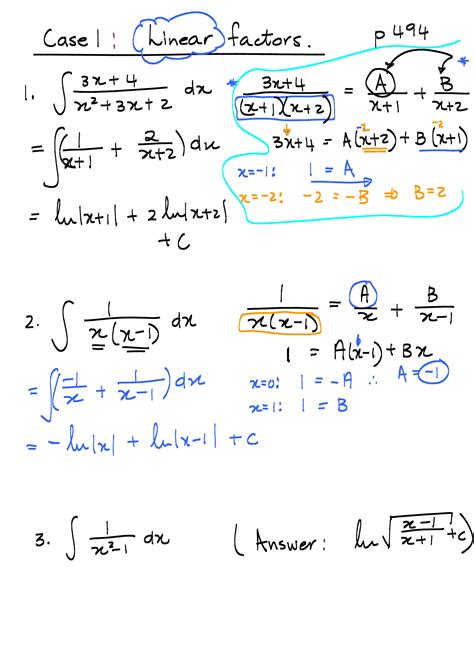 Case 1: Linear factors. p 494
1. ∫ (3x+4)/(x²+3x+2) dx * (3x+4)/((x+1)(x+2)) = A/(x+1) + B/(x+2) *
= ∫(1/(x+1) + 2/(x+2)) dx 3x+4 = A(x+2) + B(x+1)
-2 -2
x=-1: 1 = A
x=-2: -2 = -B ⇒ B=2
= ln|x+1| + 2 ln|x+2|
+ C
2. ∫ 1/(x(x-1)) dx 1/(x(x-1)) = A/x + B/(x-1)
1 = A(x-1) + Bx
= ∫(-1/x + 1/(x-1)) dx x=0: 1 = -A ∴ A=-1
x=1: 1 = B
= -ln|x| + ln|x-1| + C
3. ∫ 1/(x²-1) dx (Answer: ln √((x-1)/(x+1)) + C)